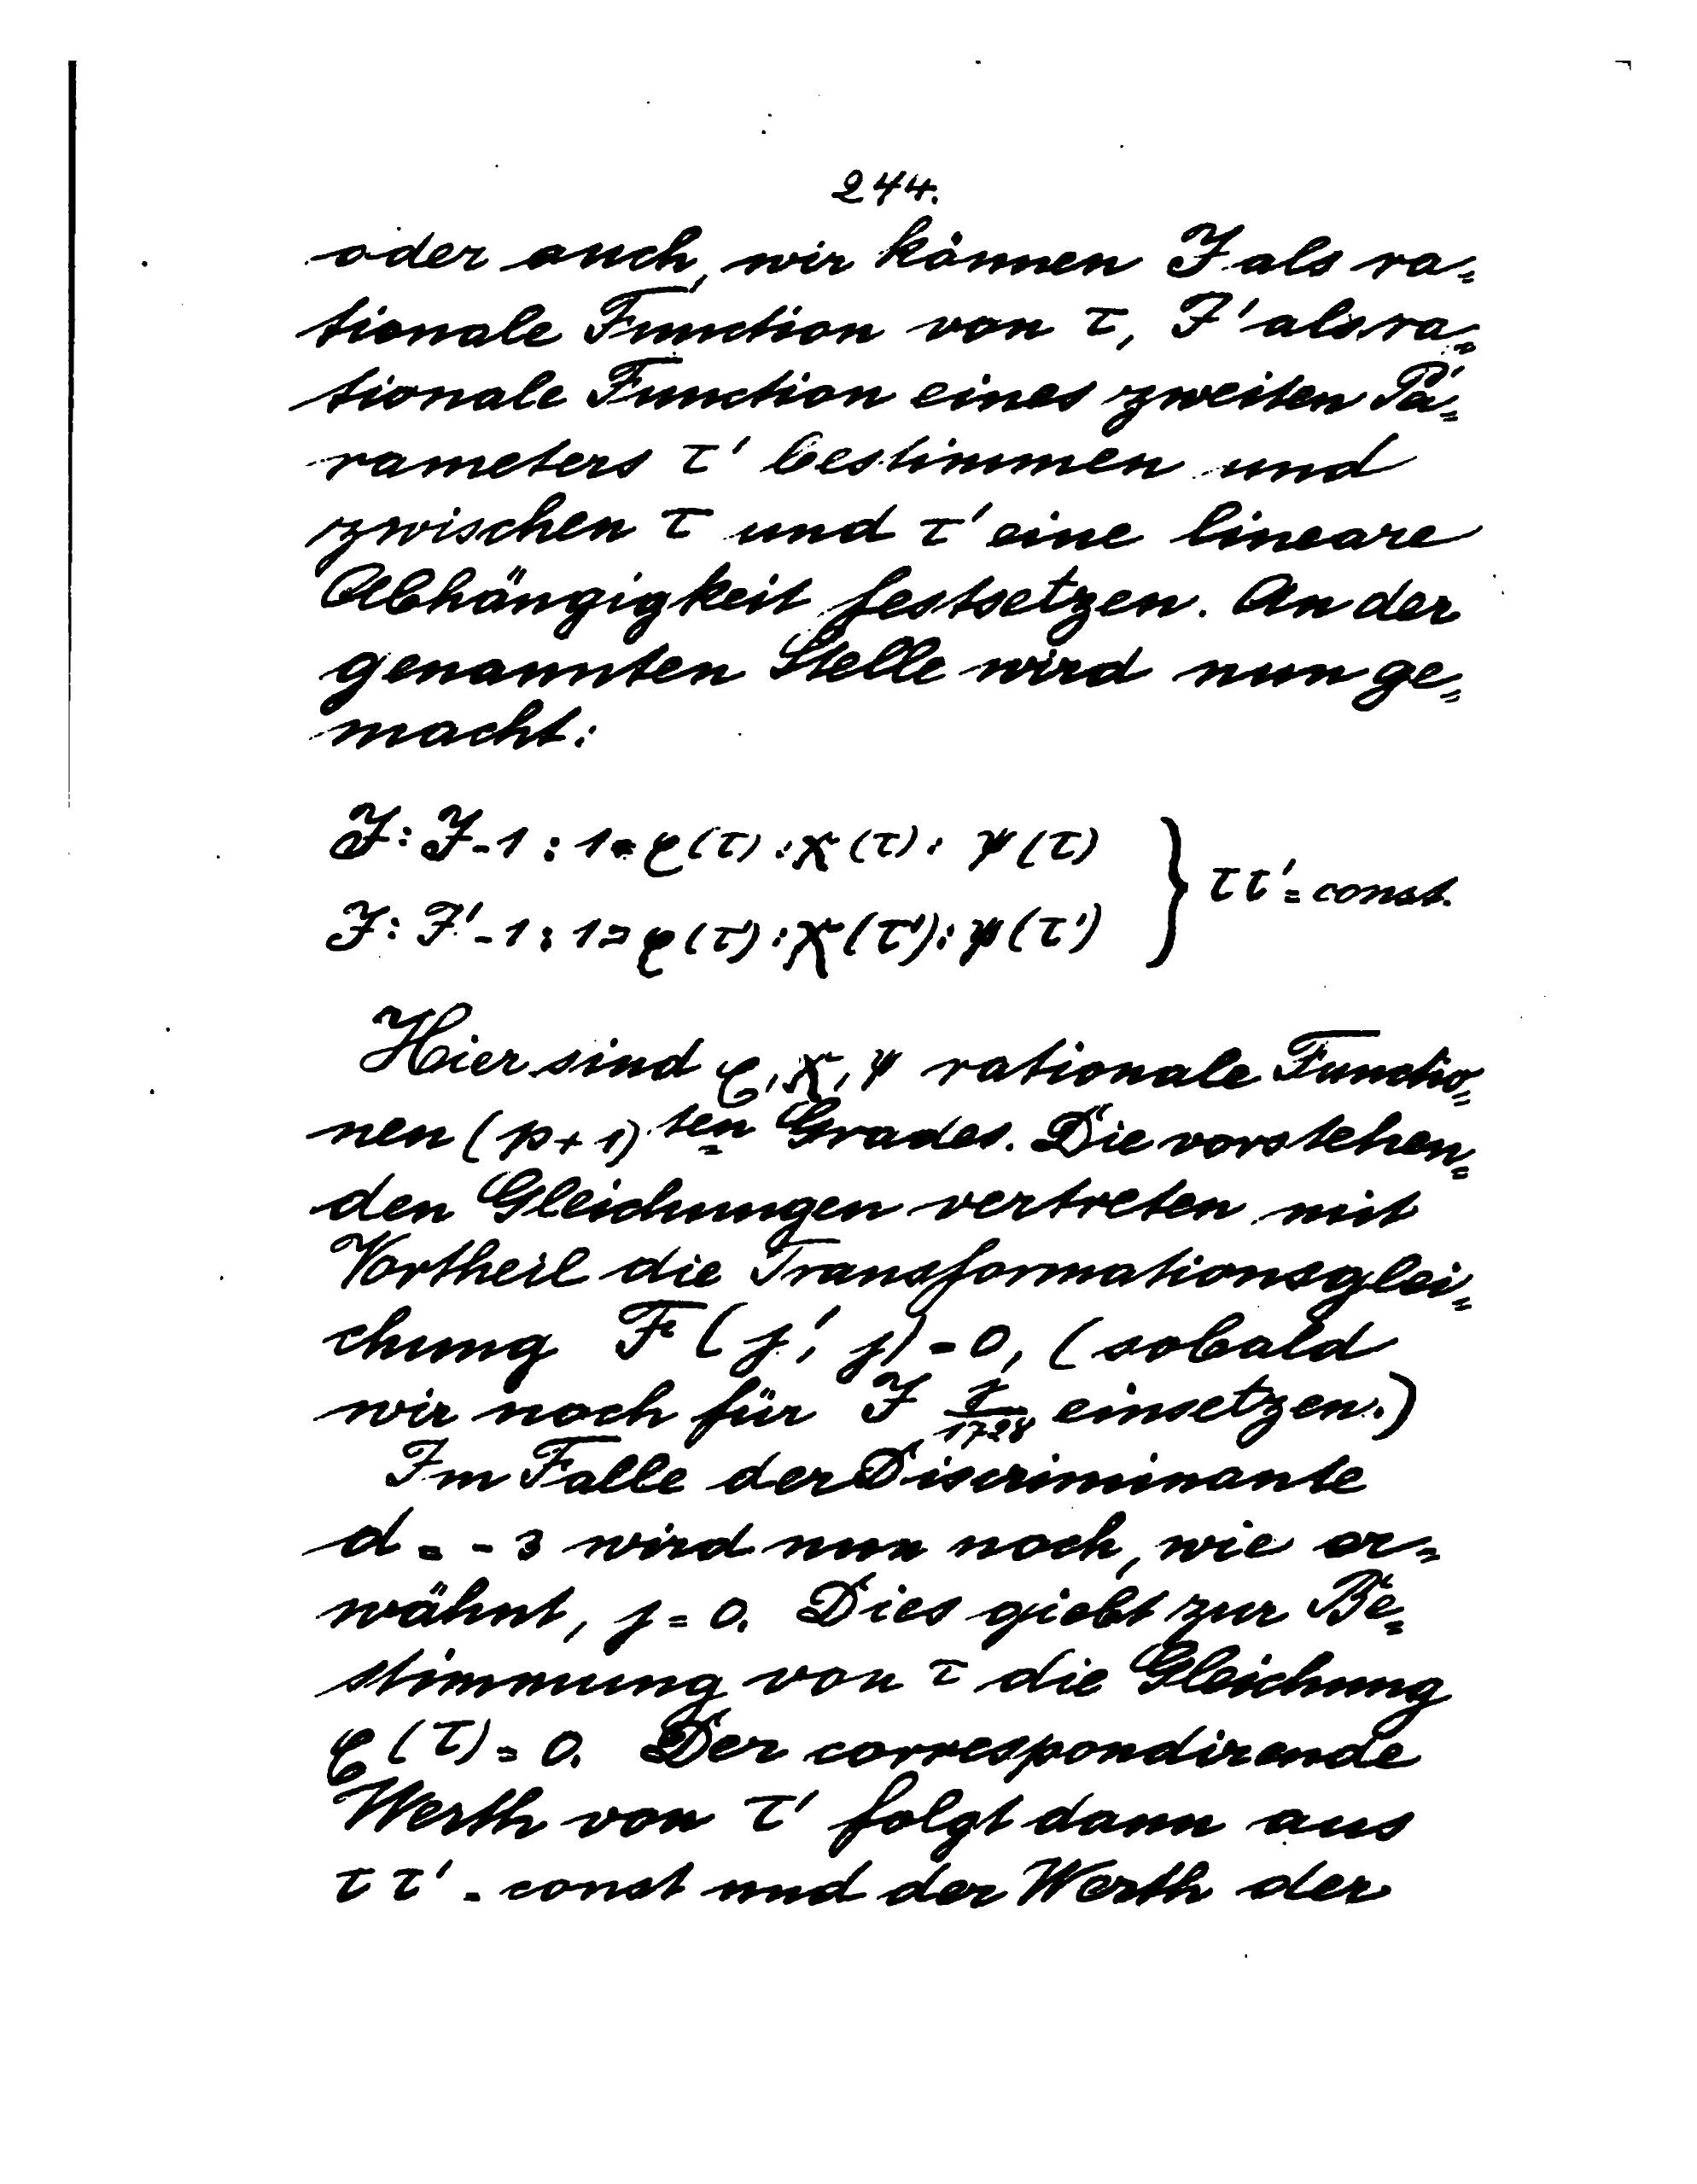 244.
oder auch, wir können J als ra=
tionale Function von τ, J' als ra=
tionale Function eines zweiten Pa=
rameters τ' bestimmen und
zwischen τ und τ' eine lineare
Abhängigkeit festsetzen. An der
genannten Stelle wird nun ge=
macht:
J : J-1 : 1 = φ(τ) : χ(τ) : ψ(τ)
J : J'-1 : 1 = φ(τ) : χ(τ') : ψ(τ') } ττ' = const.
Hier sind φ, χ, ψ rationale Functio=
nen (p+1)ten Grades. Die vorstehen=
den Gleichungen vertreten mit
Vortheil die Transformationsglei=
chung F(j', j) = 0, (sobald
wir noch für J j/1728 einsetzen.)
Im Falle der Discriminante
d = -3 wird nun noch, wie er=
wähnt, j = 0. Dies giebt zur Be=
stimmung von τ die Gleichung
φ(τ) = 0. Der correspondirende
Werth von τ' folgt dann aus
ττ' = const und der Werth der